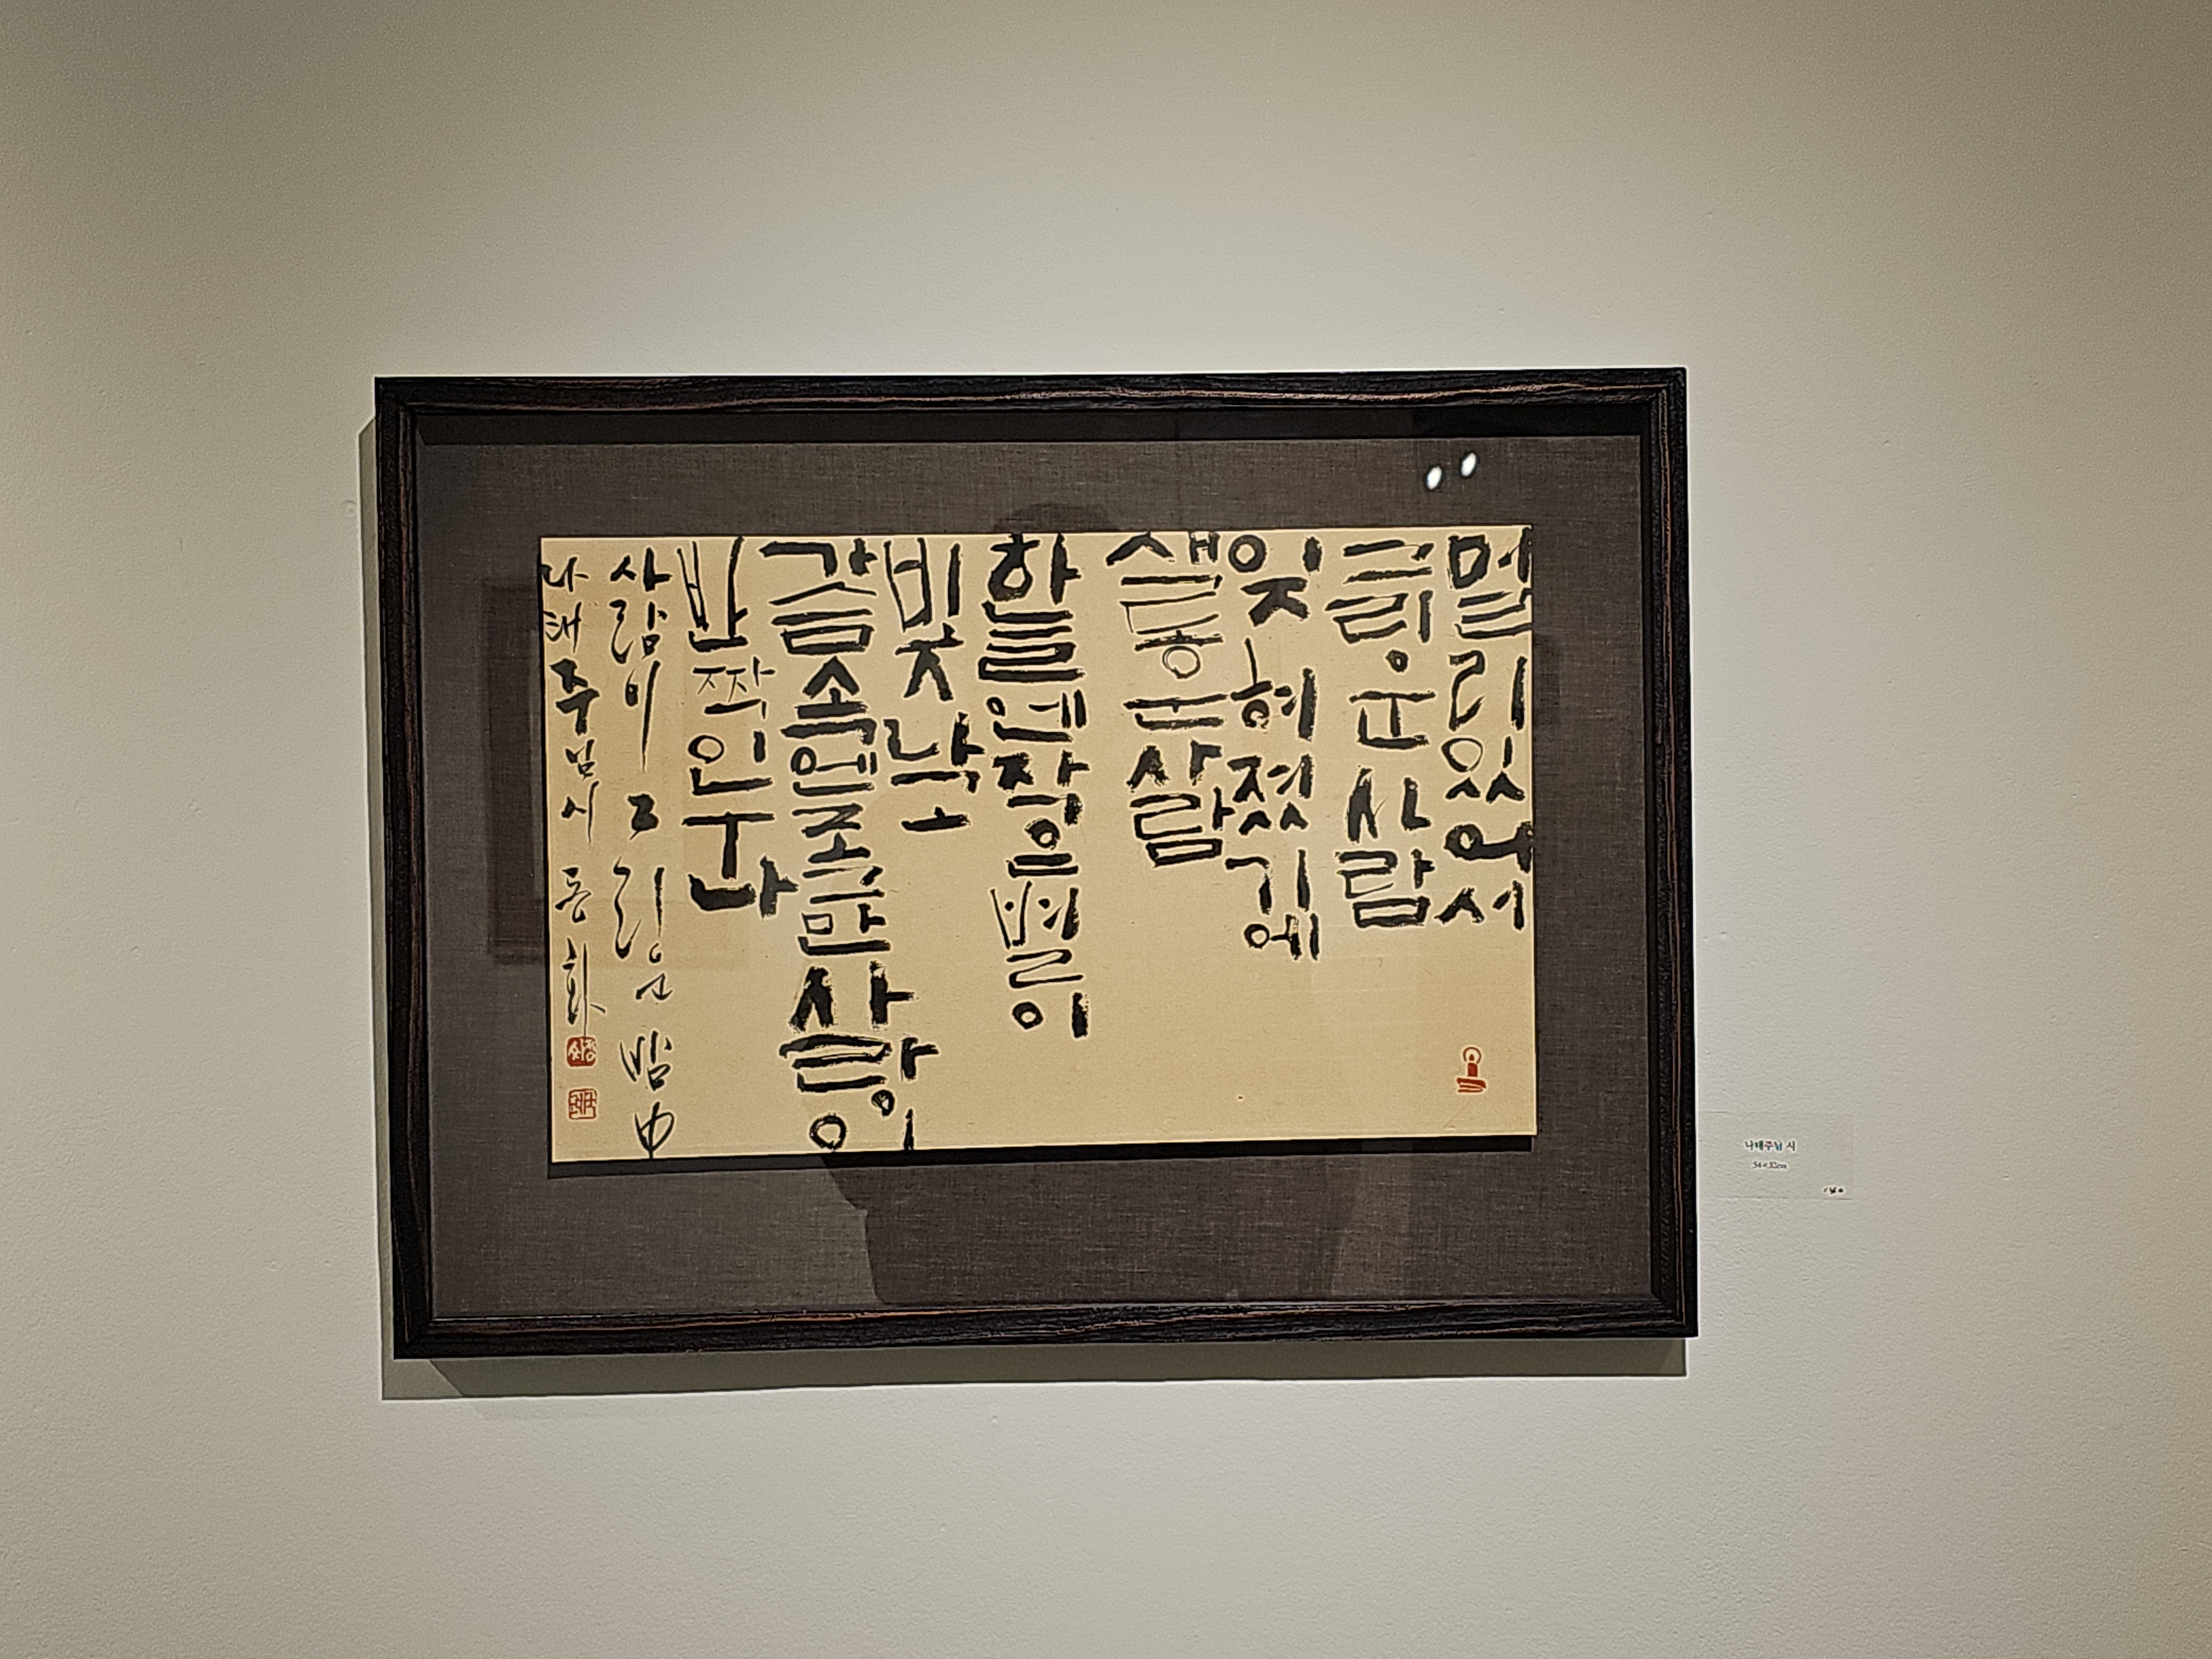 멀리 있어서
그리운 사람
잊혀졌기에
새로운 사람
하늘엔 작은 별이
빛나고
가슴속엔 조그만 사랑이
반짝이누나
사람이 그리운 밤 中
나태주님 시
나태주님 시
54×32cm